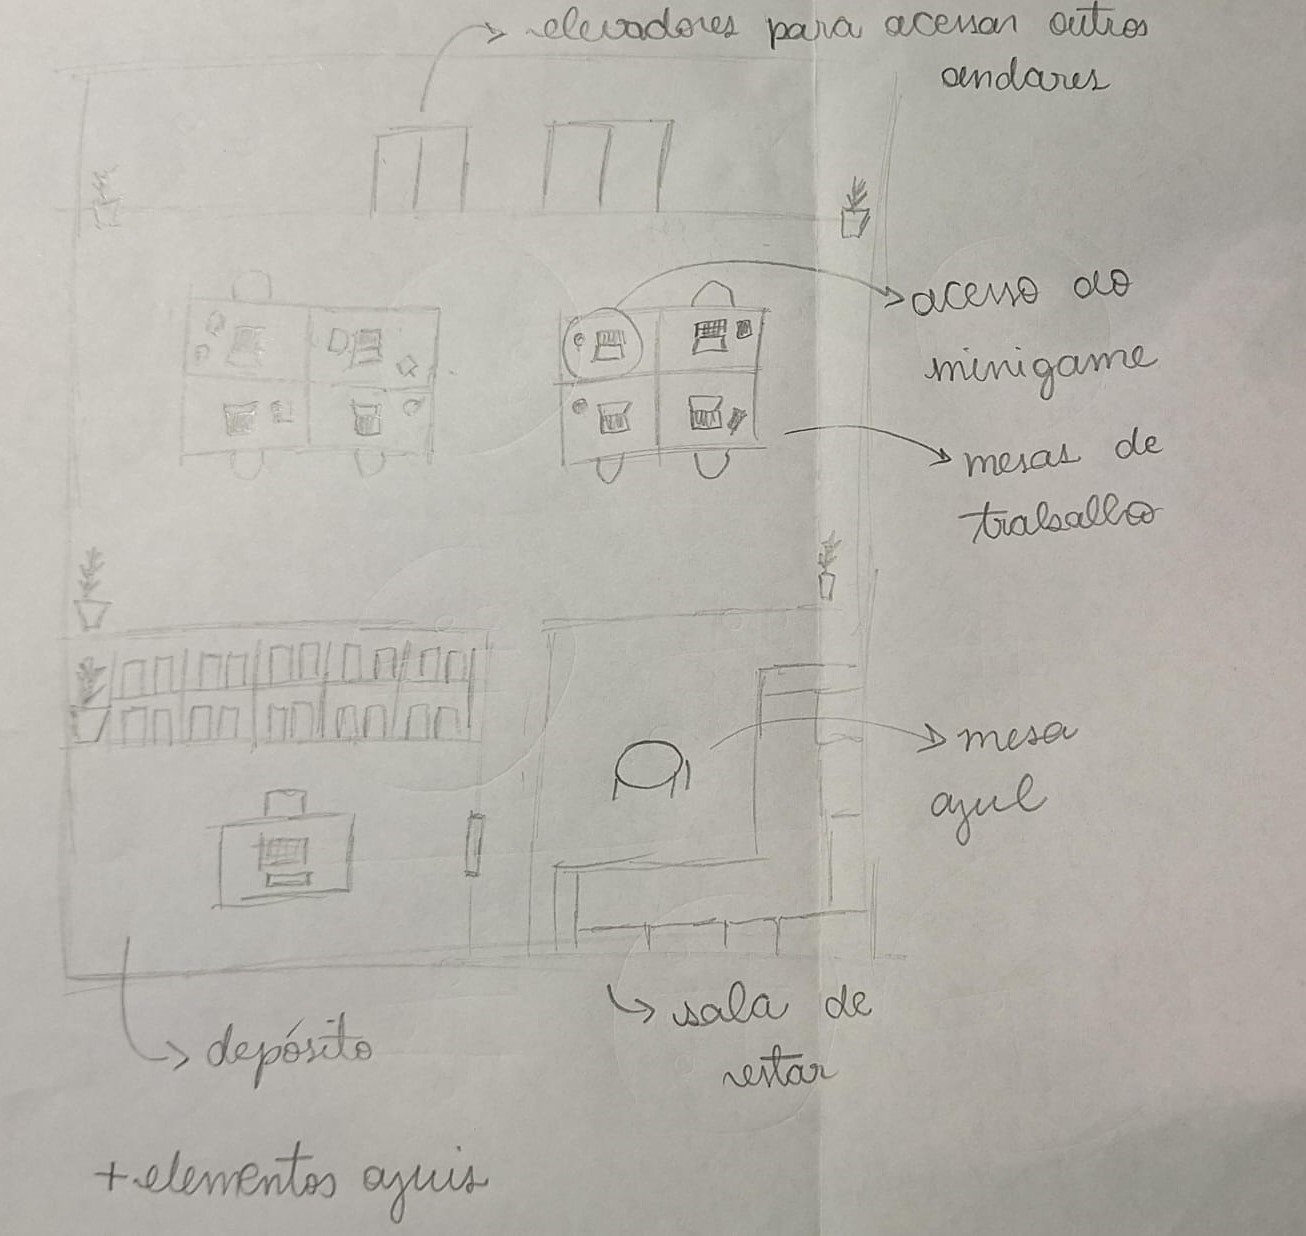 elevadores para acessar outros
andares
acesso ao
minigame
mesas de
trabalho
mesa
azul
sala de
estar
depósito
+ elementos azuis